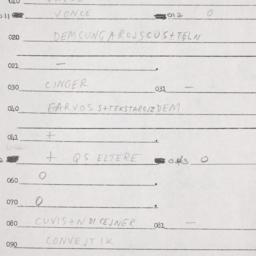 011 VONCE 012 0
020 DEMSUNGAROJSCUS+TELN
021 –
030 CINGER 031 –
040 FARVOS S+TEKSTAROJZDEM
041 +
+ QS ELTERE 0
060 0
070 0
080 CUVIS+N DICEJNER 081 –
090 CONVEJT IK